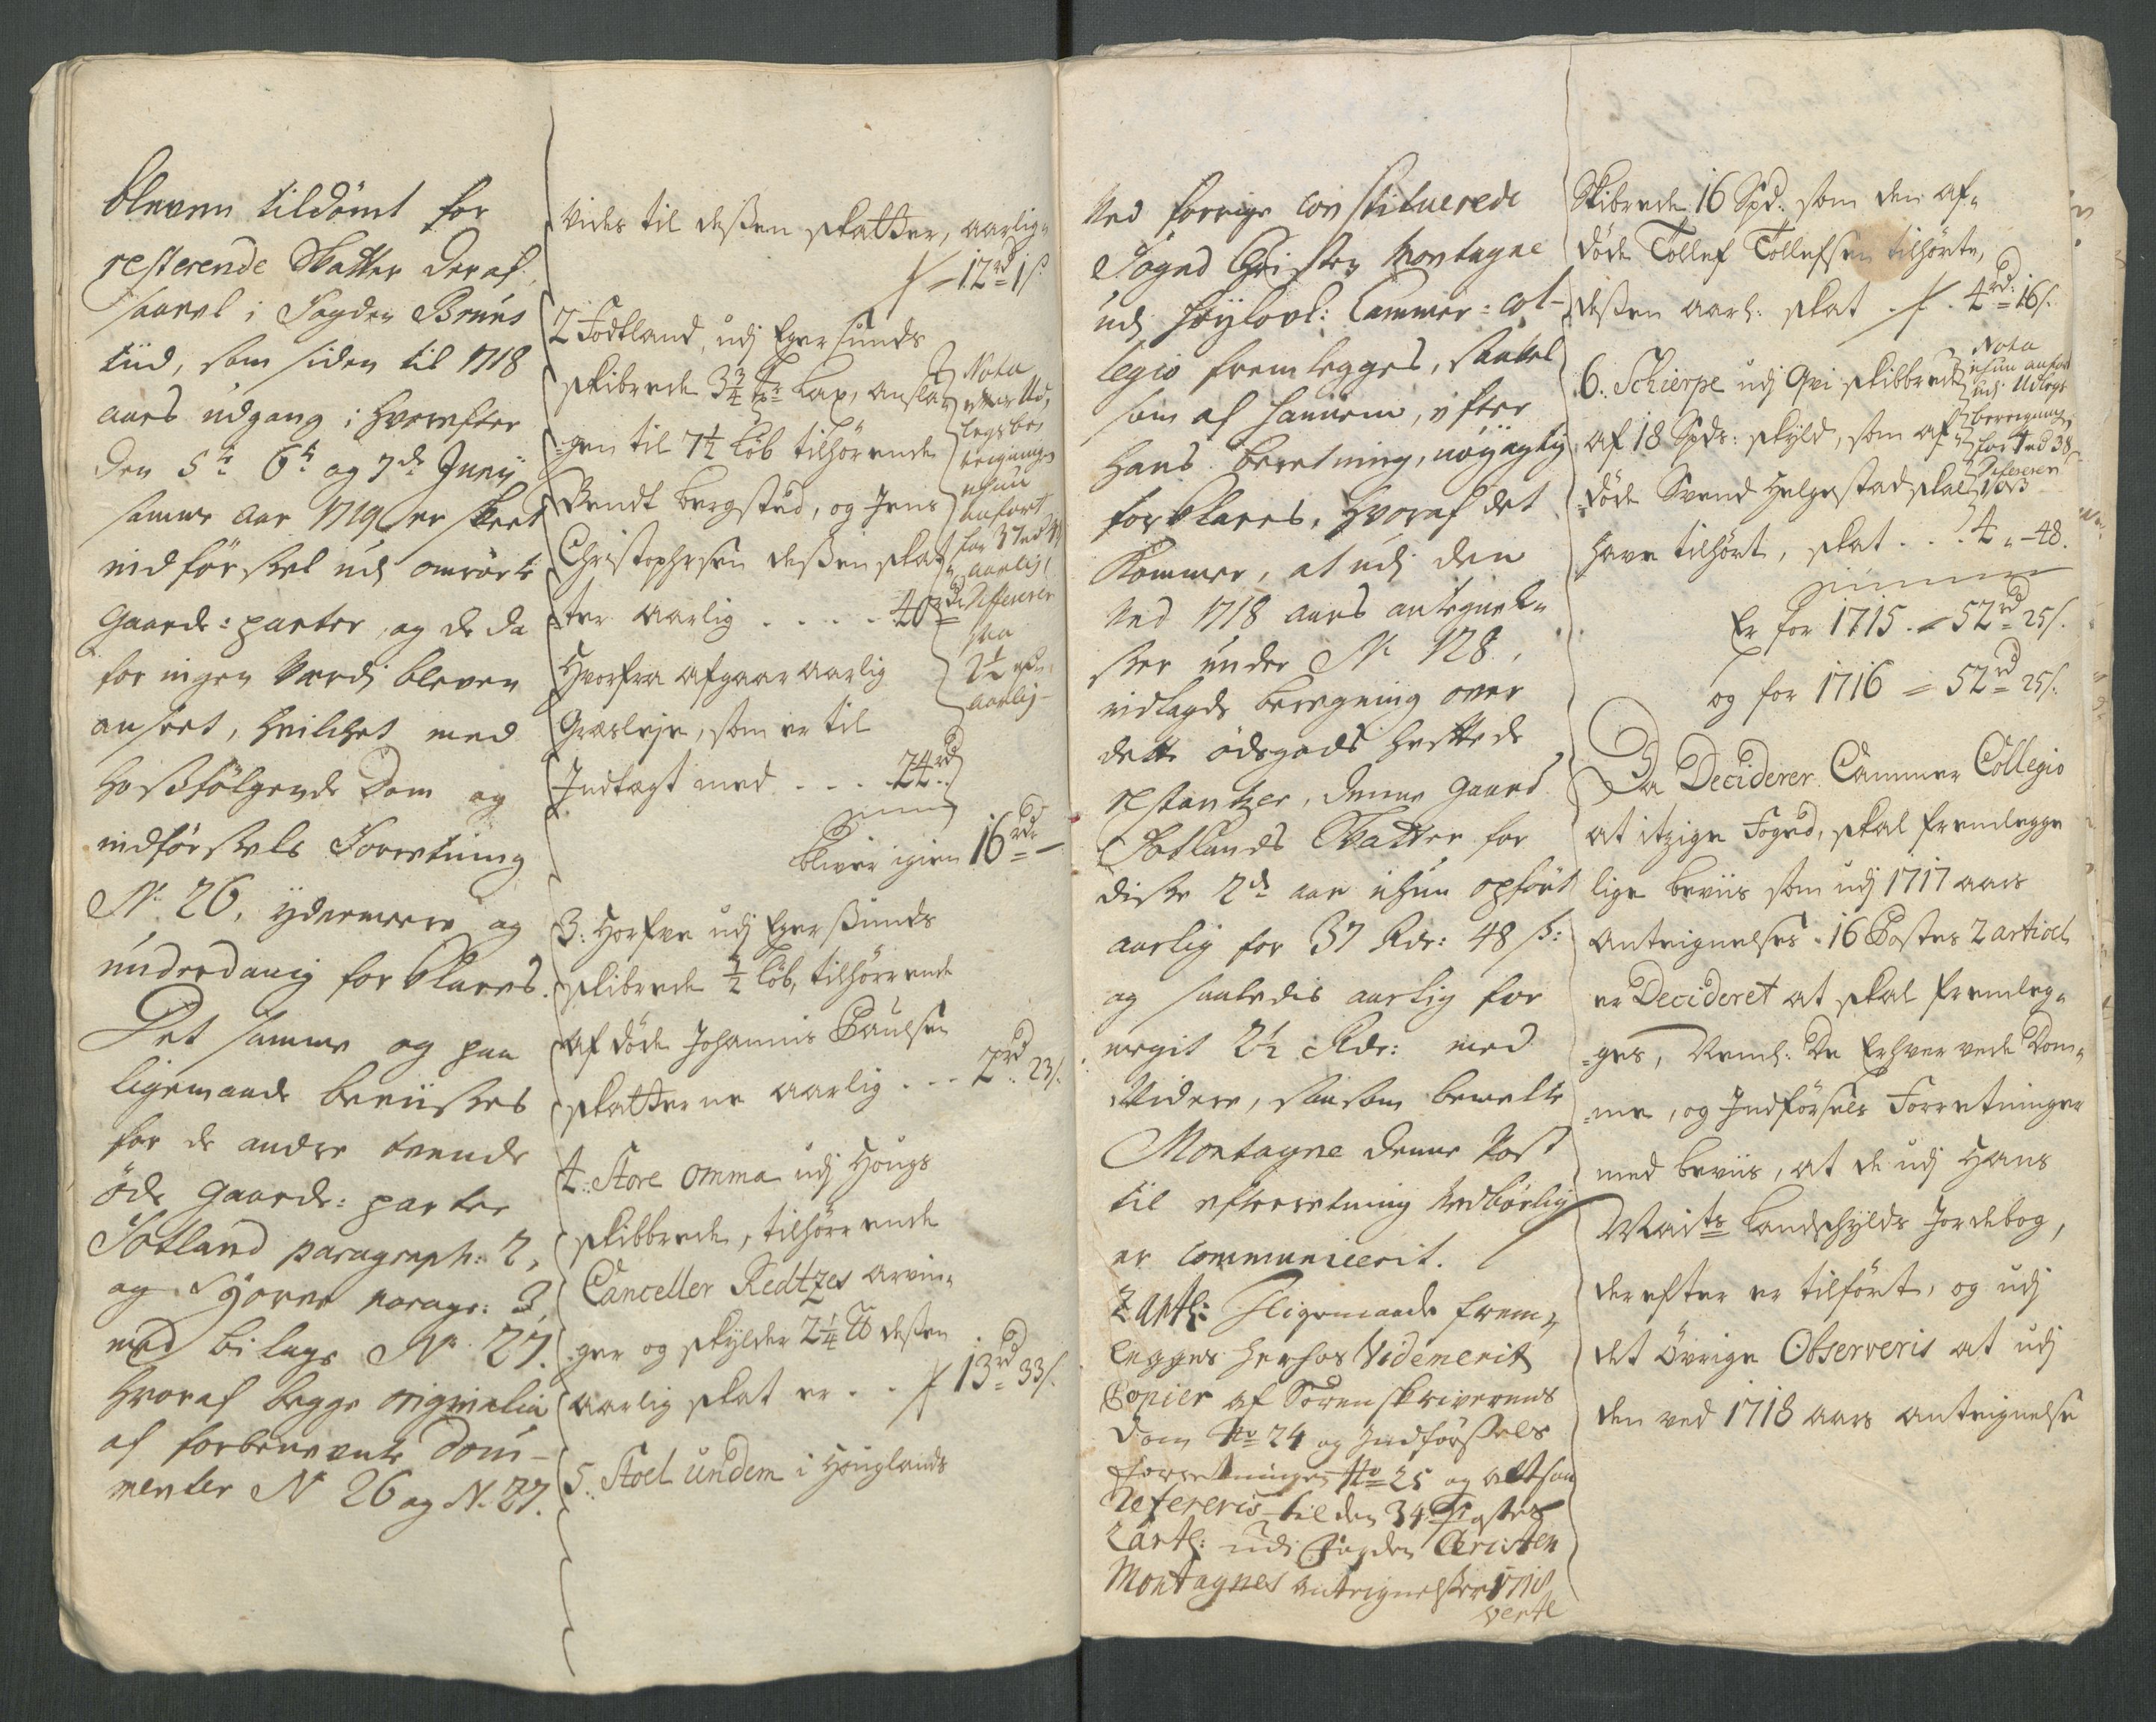 bleven tildömt for
resterende Skatter deraf,
saavel i Fogden Bruns
tiid, som siden til 1718
aars udgang; hvorefter
den 5te 6te og 7de Junij
samme aar 1719 er skeet
indförsel udj omrörte
gaarde-parter, og de da
for ingen værdj bleven
anseet, hvilchet med
hoßfölgende Dom og
indförsels Forretning
No. 26, ydermeere og
underdanig forklares.
Det samme og paa
ligemaade beviißes
for de andre tvende
öde gaarde-parter
Fotland paragraph: 2,
og Hörve paragr: 3,
med bilage No 27.
hvoraf begge originalia
af forbenevnte Docu-
menter N 26 og N. 27.
vides til deßen skatter, aarlig-
12rd 1s
2 Fodtland, udj Egersunds
skibrede 3 3/4 Lax, ansla-
gen til 7 1/2 Löb tilhörende
Bendt bergsted, og Jens
Christophersen deßen skat-
ter aarlig . . . . . 40rd
hvorfra afgaar aarlig
græsleje, som er til
Indtægt med . . . 24rd
bliver igien 16rd —
Nota
efter Ud-
legs be-
reigninge
ichun
anfört
for 37rd
aarlig
Differerer
2 1/2
aarlig
3: Hörfve udj Egersunds
skibrede 1/2 Löb, tilhörrende
af döde Johannis Paulsen
skatterne aarlig . . . 2rd 23s.
4: Store Omma udj Hougs
skibbrede, tilhörrende
Canceller Redtzes arvin-
ger og skylder 2 1/4 deßen
aarlig skat er . . 13rd 33s.
5: Stoel undem i Houglands
Ved forrige Constituerede
Fogeed Christen Montagne
udj höylovl: Cammer-Col-
legio fremlegges, saavel
som af hannem, efter
hans beretning, nöyagtig
forklares, hvoraf det
kommer, at udj den
Ved 1718 aars antegnel-
ser under No 128,
indlagde beregning over
dette ödegods heftede
restantzer, denne gaard
Fotlands Skatter for
diße 2de aar ichun opfört
aarlig for 37 Rdr: 48 s:
og saaledis aarlig for
meget 2 1/2 Rdr: med
Videre, saasom bemelte
Montagne denne Post
til efterretning Vedbörlig
er Communicerit.
2 Artl: Ligemaade frem-
legges herhos Videmerit
Copier af Sorenskriverens
Dom No 24 og Indförsels
Forretningen No 25 og altsaa
Refereris til den 34 Postes
2 artl: udi Fogden Christen
Montagnes Antegnelser 1718
verte
Skibrede 16 Spd: som den af-
döde Tollef Tollefsen tilhörte,
deßen aarl: skat . . 4rd 16s.
6. Schierpe udj Qvi skibbrede
af 18 Spds: skyld, som af-
döde Svend Helgestad skal
have tilhört, skat . . . 4 „ 48.
Nota
ichun anfört
udj Udlegs
bereigning
for 4rd 38s
Differerer
10s
Er for 1715. 52rd 25s.
og for 1716 = 52rd 25s.
Da Deciderer Cammer Collegio
at itzige Foged, skal fremlegge
lige beviis som udj 1717 aars
Antegnelses 16 Postes 2 articl
er Decideret at skal fremleg-
ges, Neml: De Erhvervede Dom-
me, og Indförsels Forretninger
med beviis, at de udj Hans
Maits Landschylds Jordebog,
derefter er tilfört, og udj
det övrige Observeris at udj
den ved 1718 aars Antegnelse